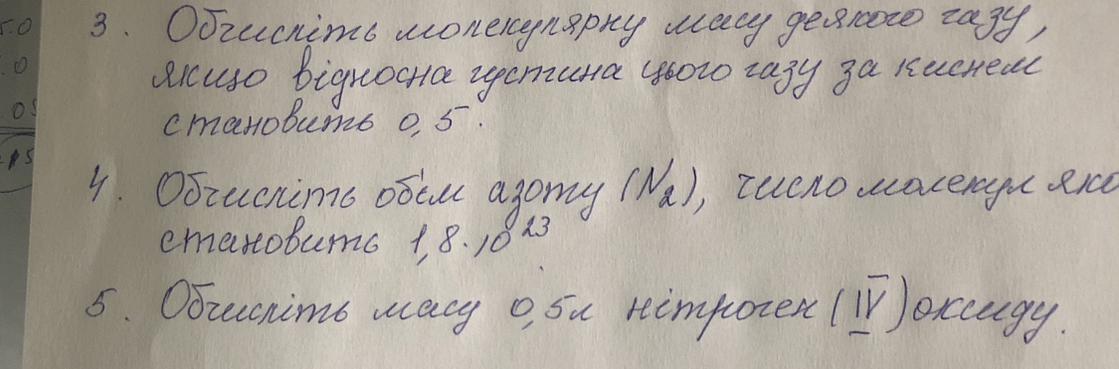 3. Обчисліть молекулярну масу деякого газу,
якщо відносна густина цього газу за киснем
становить 0,5.
4. Обчисліть об'єм азоту (N₂), число молекул яко
становить 1,8·10²³
5. Обчисліть масу 0,5л нітроген (IV) оксиду.